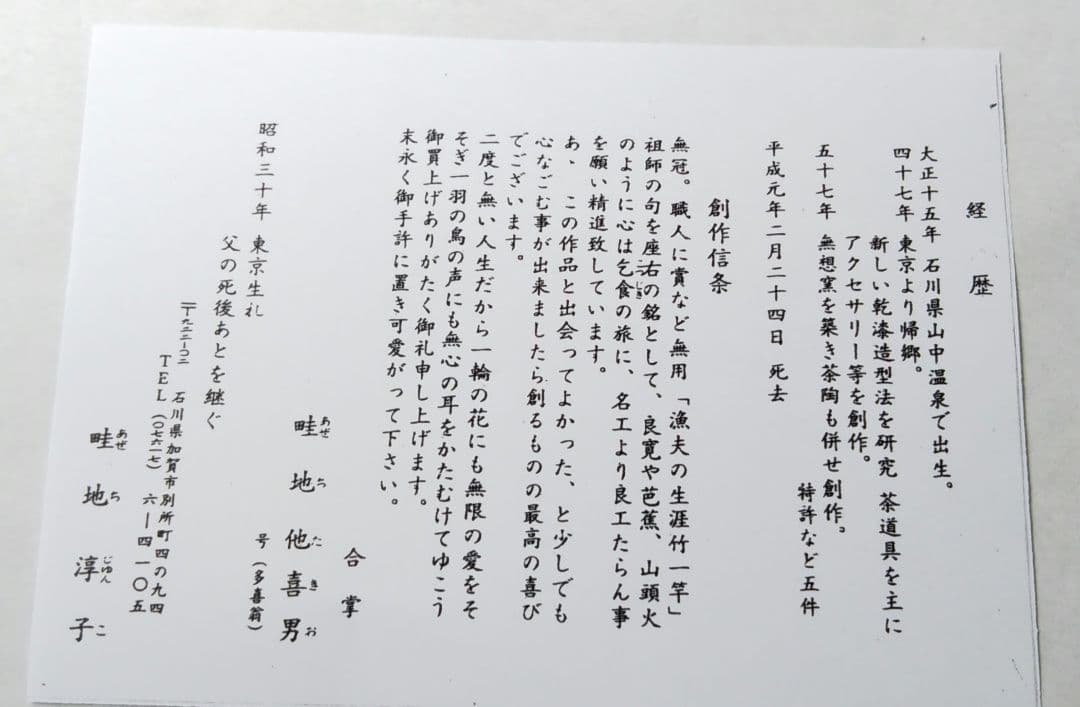 経歴
大正十五年 石川県山中温泉で出生。
四十七年 東京より帰郷。
新しい乾漆造型法を研究 茶道具を主に
アクセサリー等を創作。
五十七年 無想窯を築き茶陶も併せ創作。
特許など五件
平成元年二月二十四日 死去
創作信条
無冠。職人に賞など無用「漁夫の生涯竹一竿」
祖師の句を座右の銘として、良寛や芭蕉、山頭火
のように心は乞食の旅に、名工より良工たらん事
を願い精進致しています。
あゝ この作品と出会ってよかった、と少しでも
心なごむ事が出来ましたら創るものの最高の喜び
でございます。
二度と無い人生だから一輪の花にも無限の愛をそ
そぎ一羽の鳥の声にも無心の耳をかたむけてゆこう
御買上げありがたく御礼申し上げます。
末永く御手許に置き可愛がって下さい。
合掌
畦地他喜男
あぜち たきお
号(多喜翁)
昭和三十年 東京生れ
父の死後あとを継ぐ
石川県加賀市別所町四の九四
TEL(〇七六一七)六ー四一〇五
畦地淳子
あぜち じゅんこ